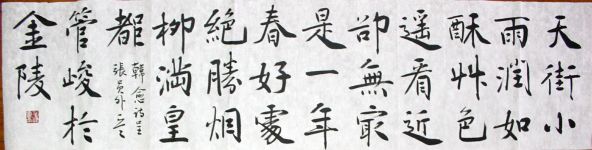 天街小
雨潤如
酥艸色
遥看近
卻無最
是一年
春好處
絕勝烟
柳滿皇
都
韓愈詩呈
張员外
管峻於
金陵